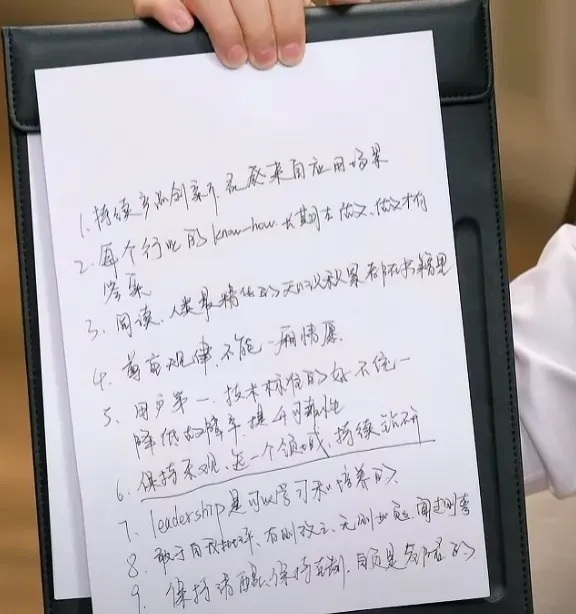 1. 持续产品创新,灵感来自应用场景
2. 每个行业的 know-how 长期去做文、做文才有
答案
3. 阅读、人类最精华的知识积累都在书籍里
4. 尊重规律,不能一厢情愿
5. 用户第一,技术标准的 不统一
降低故障率,提升可靠性
6. 保持乐观、选一个领域,持续钻研
7. leadership是可以学习和培养的
8. 敢于自我批评、有则改之、无则加勉,闻过则喜
9. 保持清醒,保持克制,自负是 的